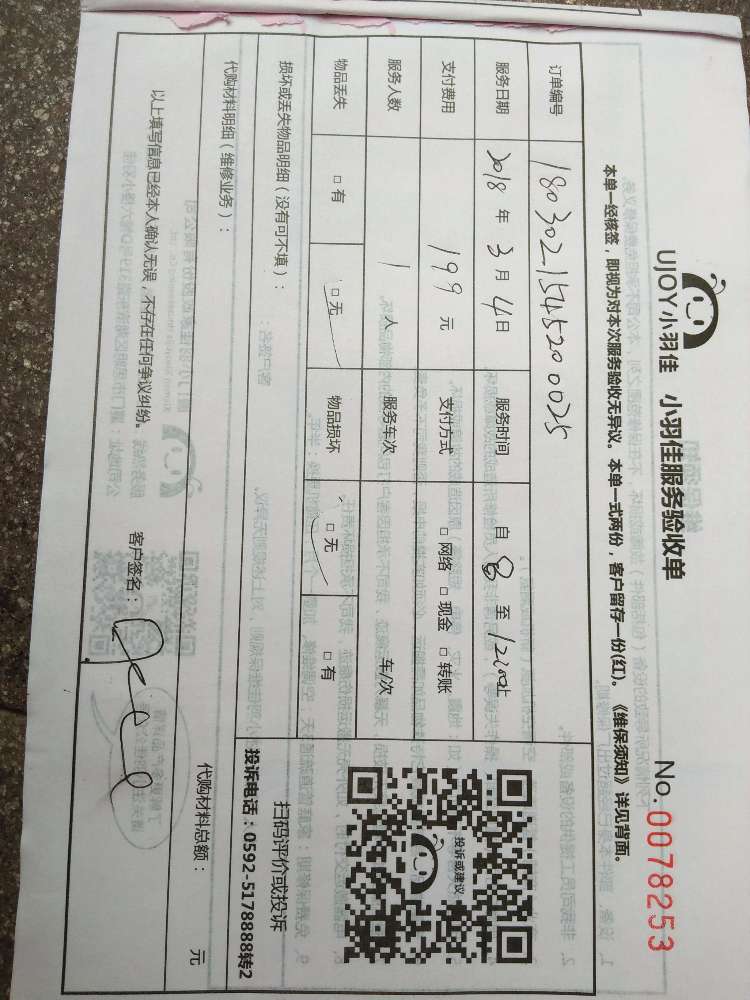 UJOY小羽佳 小羽佳服务验收单 No. 0078253
本单一经核签，即视为对本次服务验收无异议。本单一式两份，客户留存一份(红)。《维保须知》详见背面。
订单编号 180302154520 0025
服务日期 2018 年 3 月 4 日 服务时间 自 8 至 12:00 止
支付费用 199 元 支付方式 □ 网络 □ 现金 □ 转账
服务人数 1 人 服务车次 车/次
物品丢失 □ 有 □ 无 物品损坏 □ 无 □ 有
投诉或建议
扫码评价或投诉
投诉电话：0592-5178888转2
损坏或丢失物品明细（没有可不填）：
代购材料明细（维修业务）：
代购材料总额： 元
以上填写信息已经本人确认无误，不存在任何争议纠纷。 客户签名：